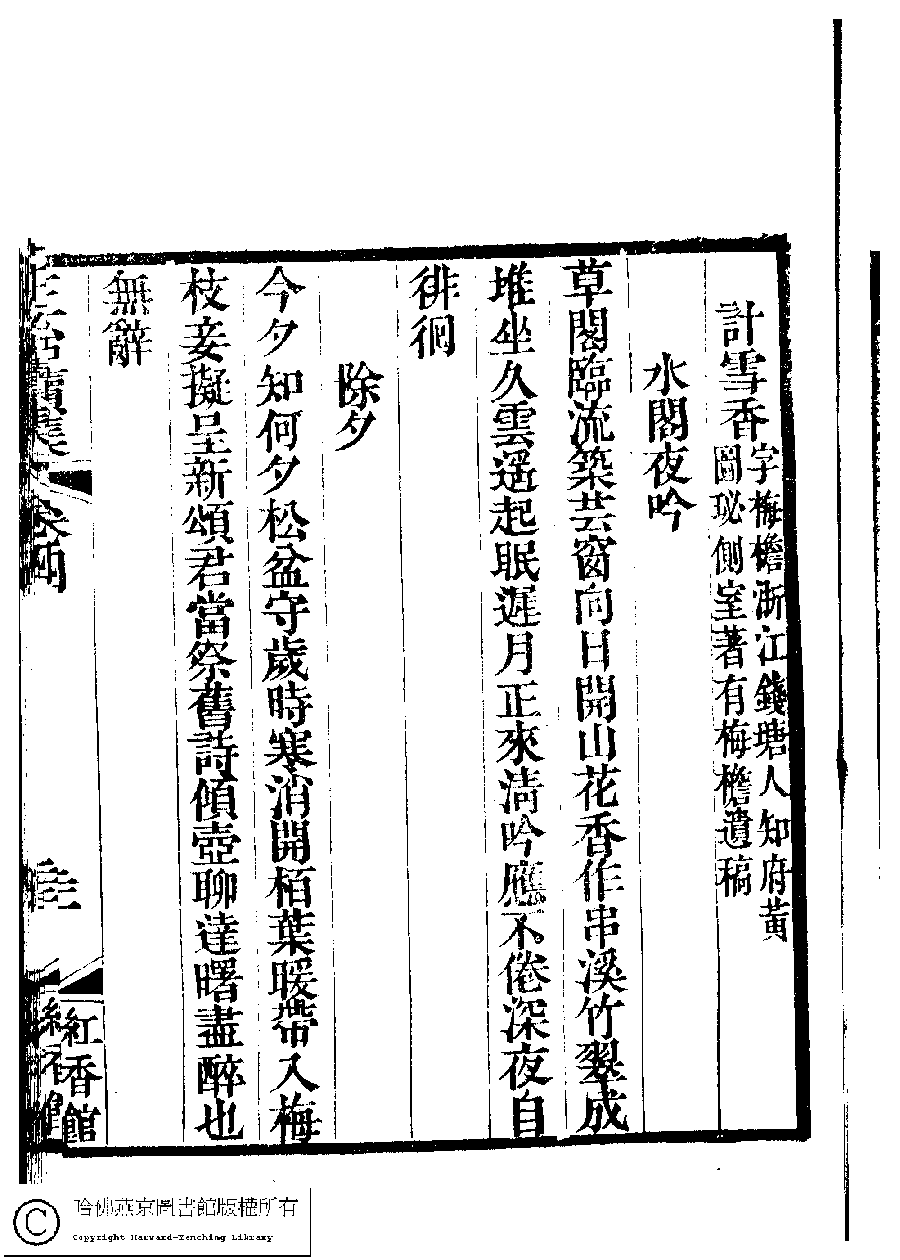 計雪香
字梅檐浙江錢塘人知府黃
圖珌側室著有梅檐遺稿
水閣夜吟
草閣臨流築芸窗向日開山花香作串溪竹翠成
堆坐久雲遥起眠遲月正來淸吟應不倦深夜自
徘徊
除夕
今夕知何夕松盆守歲時寒消開栢葉暖帶入梅
枝妾擬呈新頌君當祭舊詩傾壺聊達曙盡醉也
無辭
紅香館
哈佛燕京圖書館版權所有
Copyright Harvard-Yenching Library